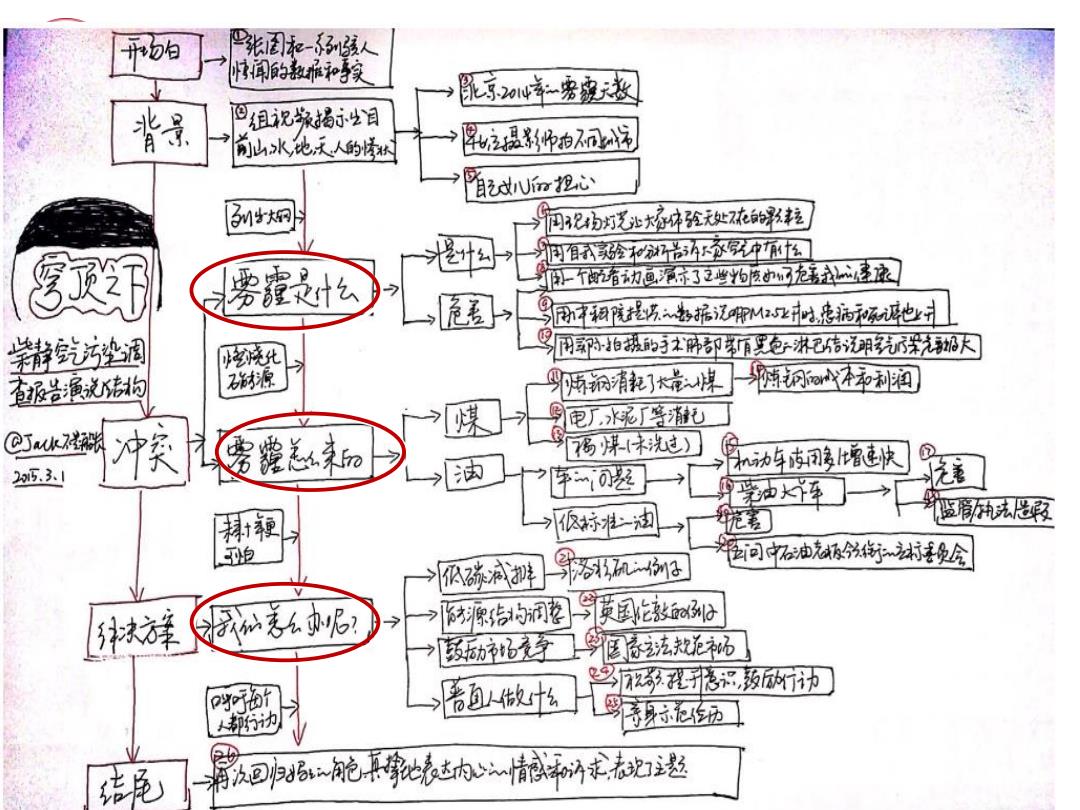 开场白
①一张图和一系列骇人
惊闻的数据和事实
背景
②组视频揭示出目
前山、水、地、天、人的惨状
③北京2014年雾霾天数
④
摄影师拍不同
⑤自己女儿的担心
列出大纲
穹顶之下
柴静空气污染调
查报告演说结构
@Jack
2015.3.1
雾霾是什么
是什么
⑥用现场灯光让大家体验无处不在的颗粒
⑦用自我实验和分析告诉大家空气中有什么
⑧用一个配音动画演示了这些物质如何危害我的健康
危害
⑨用中科院提供的数据说明PM2.5上升时,患病和死亡率也上升
⑩用 拍摄的手术肺部带有黑色淋巴结说明空气污染危害极大
燃烧化
石能源
冲突
雾霾怎么来的
煤
⑪炼钢消耗了大量煤
⑭炼钢的成本和利润
⑫电厂、水泥厂等消耗
⑬褐煤(未洗过)
油
车的问题
⑮机动车 增速快
⑯柴油大卡车
⑰危害
⑱监管执法造假
低标准油
⑲危害
⑳ 问中石油 委员会
未来十年更
可怕
解决方案
我们怎么办呢?
低碳减排
㉑洛杉矶的例子
能源结构调整
㉒英国伦敦的例子
鼓励市场竞争
㉓国家立法规范市场
普通人做什么
㉔视频提升意识,鼓励行动
㉕亲身示范经历
呼吁每个
人都行动
结尾
㉖再次回归妈妈的角色,真挚地表达内心的情感和诉求,表现了主题